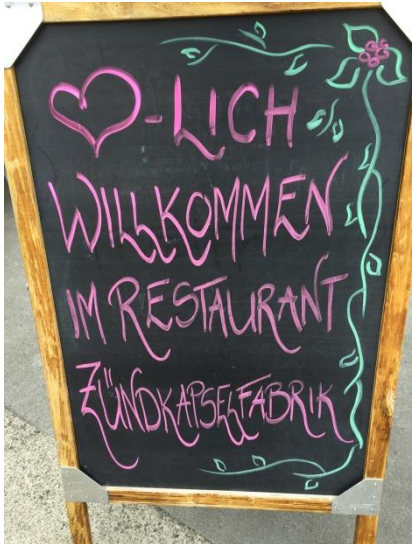 ♡-LICH
WILLKOMMEN
IM RESTAURANT
ZÜNDKAPSELFABRIK